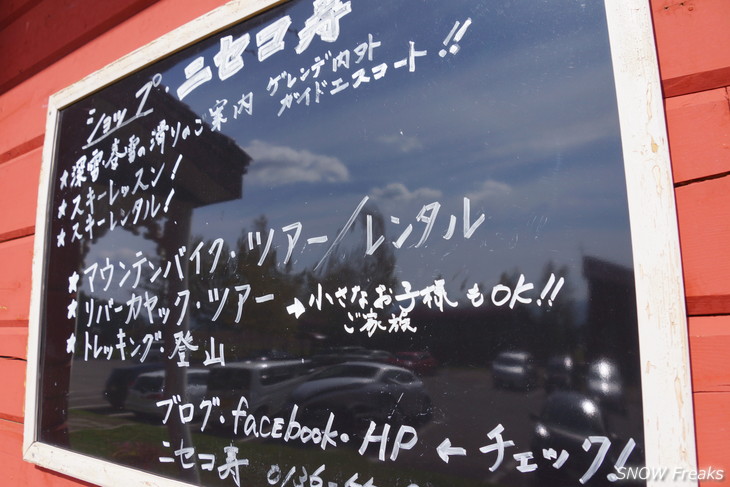 ショップ・ニセコ寿
★深雪・春雪の滑りのご案内 ゲレンデ内外
ガイドエスコート!!
★スキーレッスン!
★スキーレンタル!
★マウンテンバイク・ツアー/レンタル
★リバーカヤック・ツアー → 小さなお子様もOK!!
ご家族
★トレッキング・登山
ブログ・facebook・HP ← チェック!
ニセコ寿 0136-
SNOW Freaks